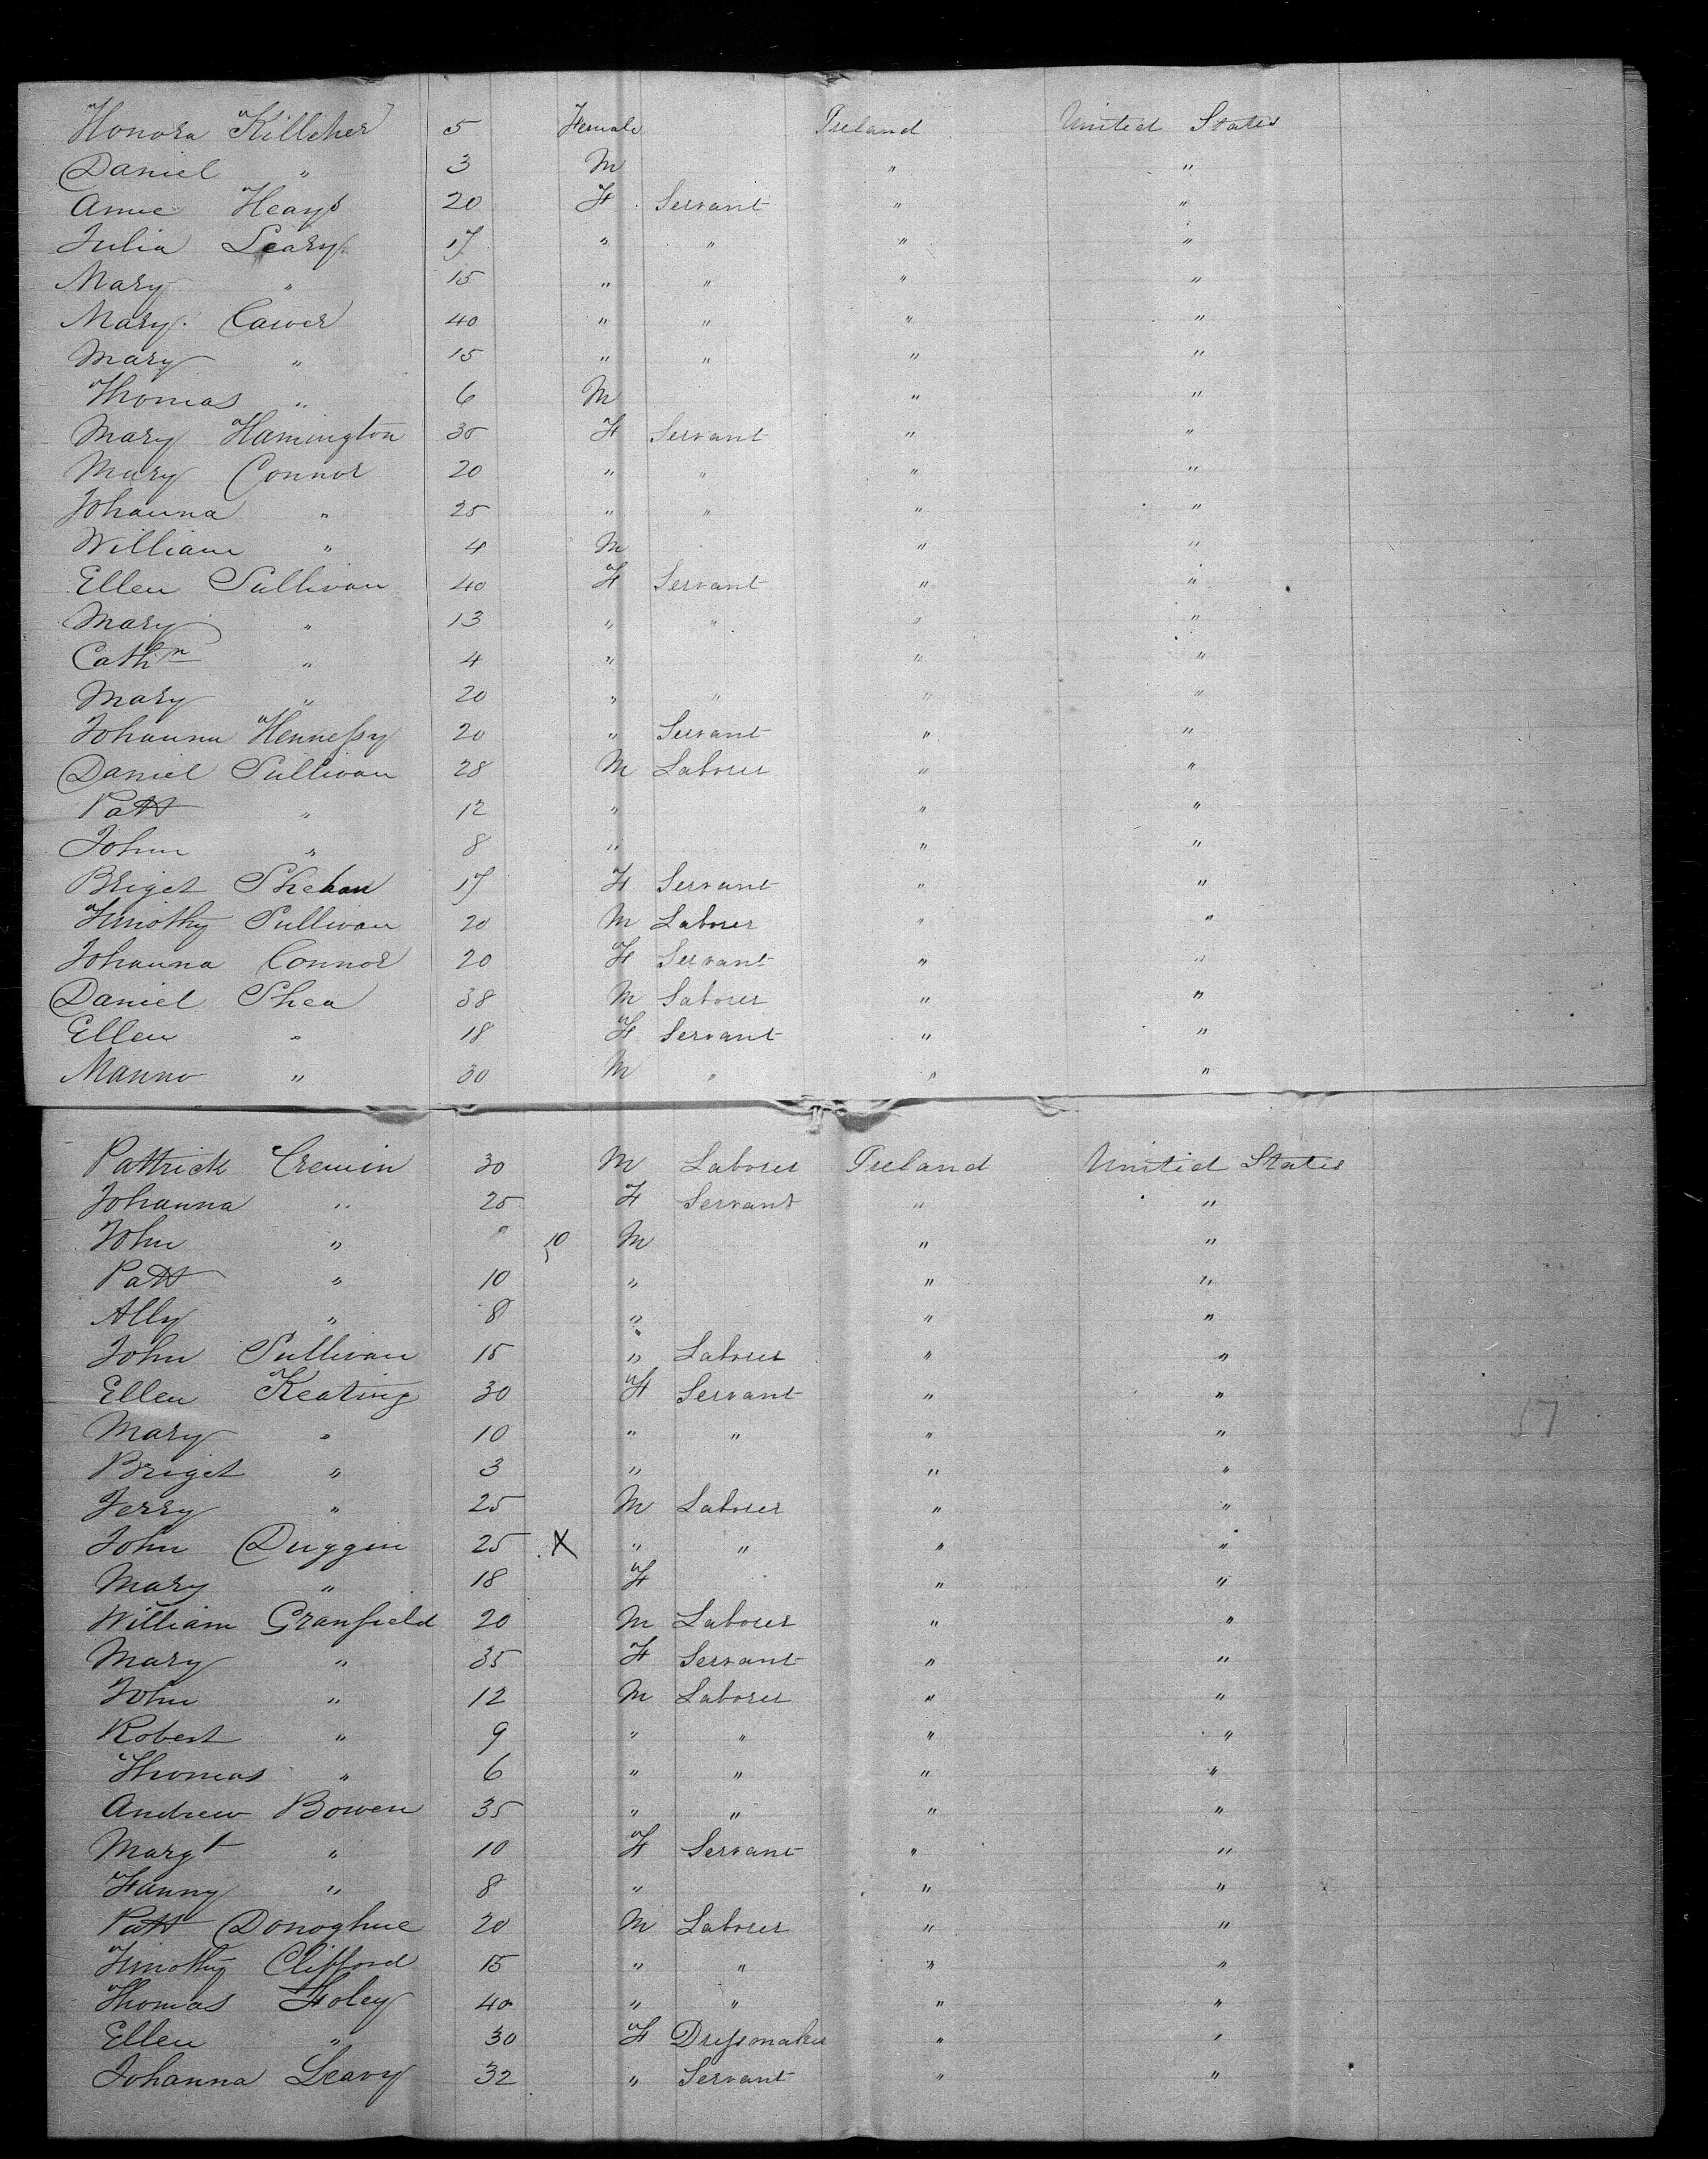 Honora Killeher 5 Female Ireland United States
Daniel " 3 M " "
Annie Heays 20 F Servant " "
Julia Leary 17 " " " "
Mary " 15 " " " "
Mary Cawer 40 " " " "
Mary " 15 " " " "
Thomas " 6 M " "
Mary Hamington 30 F Servant " "
Mary Connor 20 " " " "
Johanna " 25 " " " "
William " 4 M " "
Ellen Sullivan 40 F Servant " "
Mary " 13 " " " "
Cathn " 4 " " "
Mary " 20 " " " "
Johanna Hennessy 20 " Servant " "
Daniel Sullivan 28 M Laborer " "
Patt " 12 " " "
John " 8 " " "
Briget Shehan 17 F Servant " "
Timothy Sullivan 20 M Laborer " "
Johanna Connor 20 F Servant " "
Daniel Shea 38 M Laborer " "
Ellen " 18 F Servant " "
Manno " 30 M " " "
Pattrick Cremin 30 M Laborer Ireland United States
Johanna " 25 F Servant " "
John " " 10 M " "
Patt " 10 " " "
Ally " 8 " " "
John Sullivan 15 " Laborer " "
Ellen Keating 30 F Servant " "
Mary " 10 " " " "
Briget " 3 " " "
Jerry " 25 M Laborer " "
John Duggin 25 X " " " "
Mary " 18 F " "
William Granfield 20 M Laborer " "
Mary " 35 F Servant " "
John " 12 M Laborer " "
Robert " 9 " " " "
Thomas " 6 " " " "
Andrew Bowen 35 " " " "
Margt " 10 F Servant " "
Fanny " 8 " " "
Patt Donoghue 20 M Laborer " "
Timothy Clifford 15 " " " "
Thomas Foley 40 " " " "
Ellen " 30 F Dressmaker " "
Johanna Leavy 32 " Servant " "
17